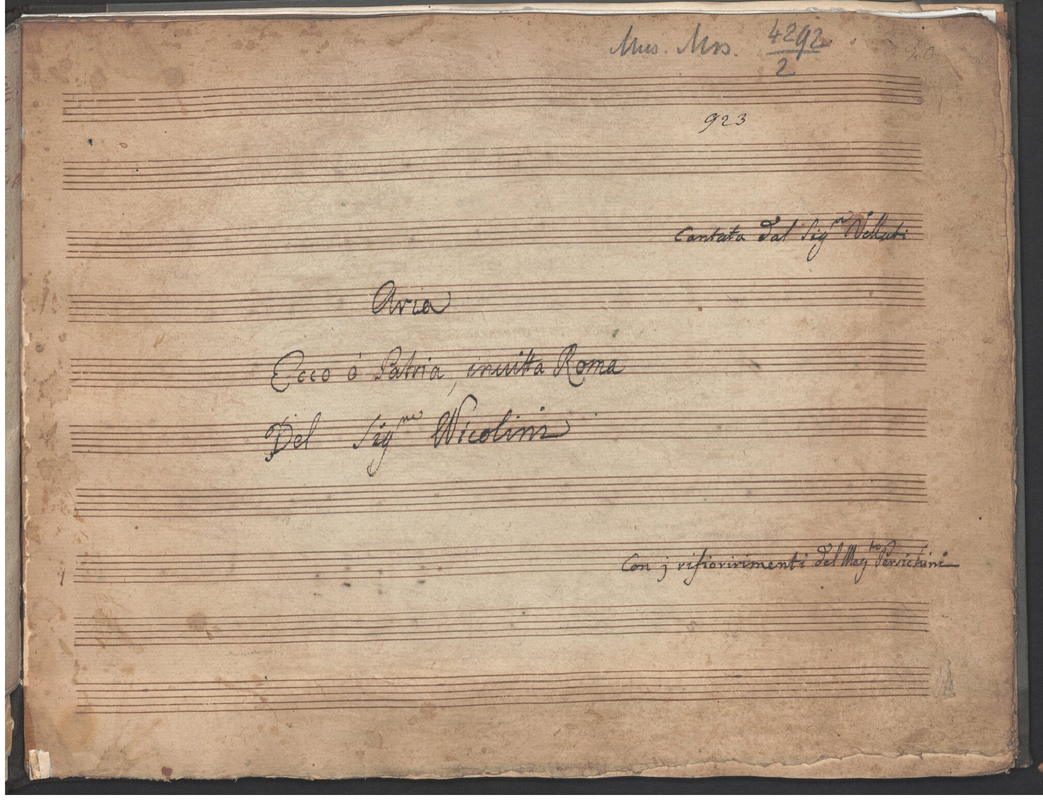 Mus. Mss. 4292/2
923
Cantata Dal Sig.re Velluti
Aria
Ecco ó Patria, invitta Roma
Del Sig.re Nicolini
Con j rifioririmenti del Mag.tro Persichini